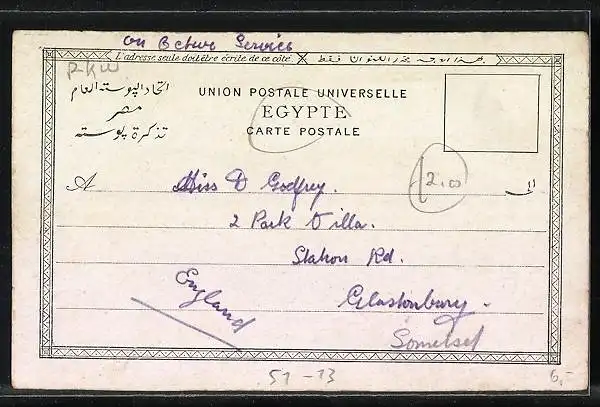 On Active Service
L'adresse seule doit être écrite de ce côté
PKW
اتحاد البوسته العام
مصر
تذكرة بوسته
UNION POSTALE UNIVERSELLE
EGYPTE
CARTE POSTALE
2.00
A Miss D Godfrey. الى
2 Park Villa.
Station Rd.
England
Glastonbury.
Somerset
51-13
6,-